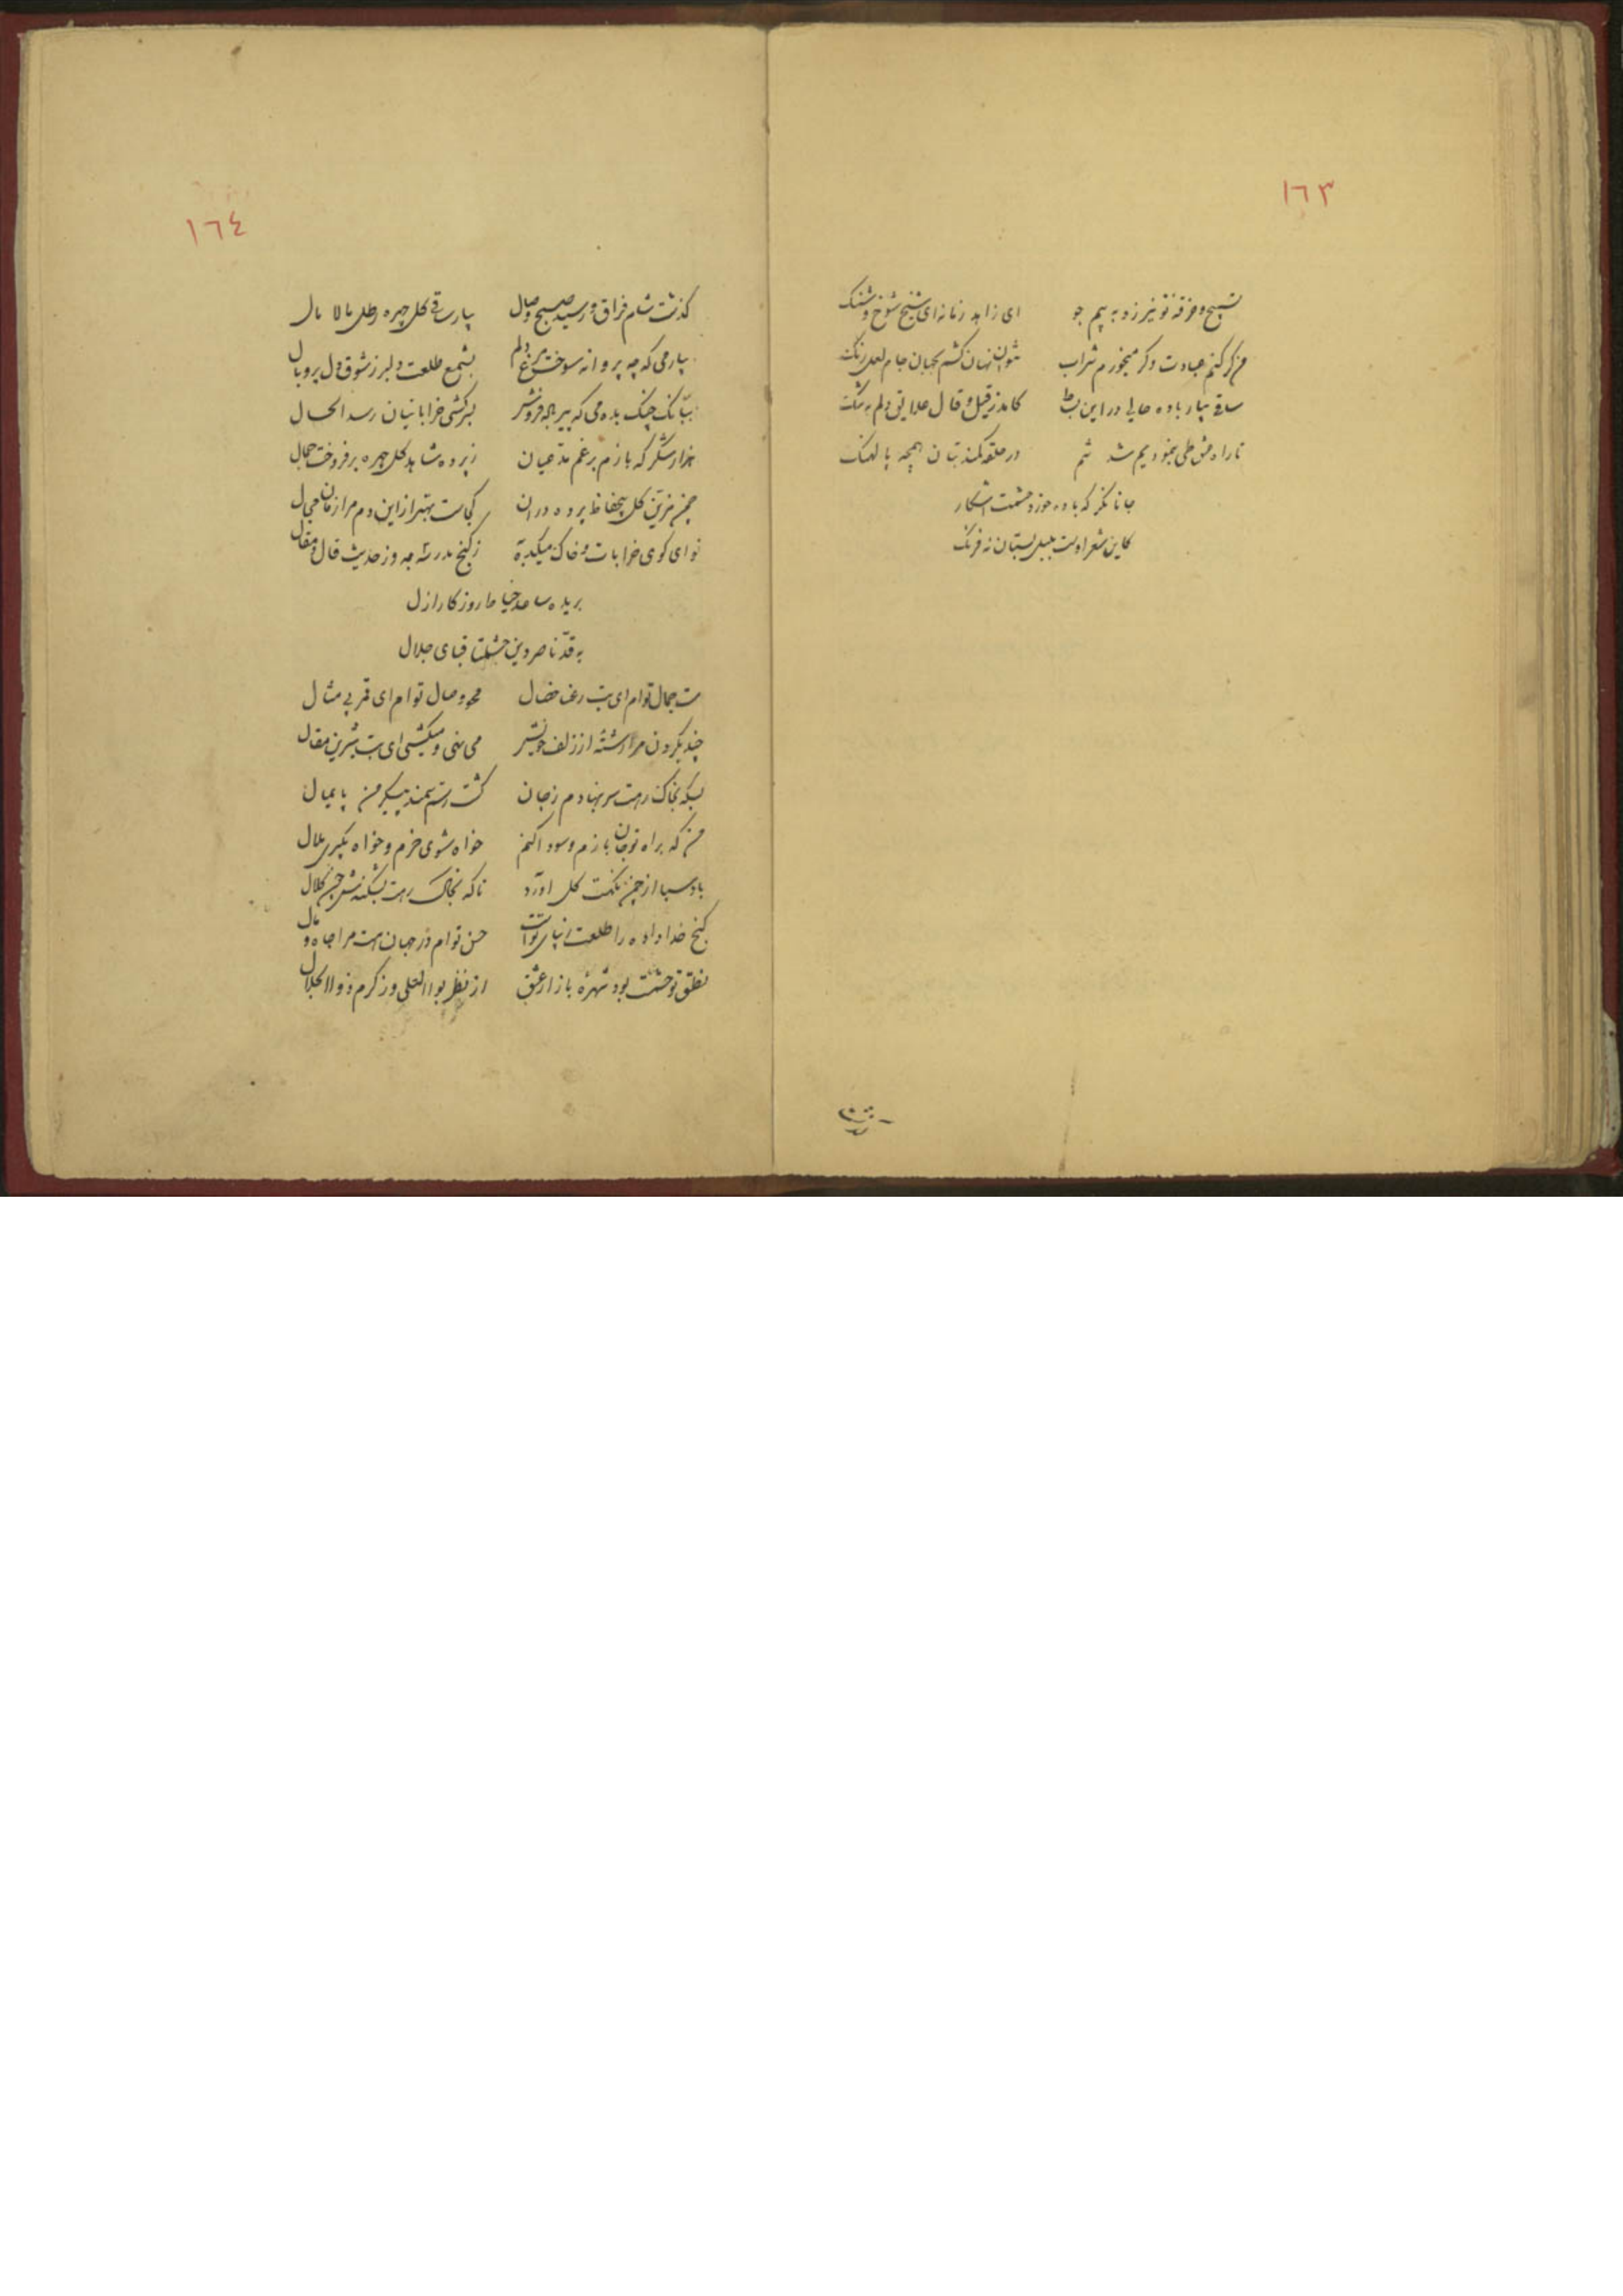 ١٦٣
تسبیح و خرقه تو نیرزد به نیم جو ای زاهد زمانه ای شیخ شوخ و شنک
من گر کنم عبادت و کر میخورم شراب نتوان نهان کشم بجهان جام لعل رنک
ساقی بیار باده حالی در این بط کامد ز قیل و قال خلایق دلم به تنک
تا راه عشق طی بنمودیم شد در حلقه کمند بتان همچه پالهنک
جانا نکر که باده خورد حشمت آشکار
کاین شعر اوست بلبل بستان نه فرنک
١٦٤
کذشت شام فراق و رسید صبح وصال بیار ساقی کلچهره رطل مالامال
بیار می که چه پروانه سوخت مرغ دلم بشمع طلعت دلبر ز شوق دل پر و بال
ببانک چنک بده می که پیر باده فروش بسرکشی خراباتیان رسد الحال
هزار شکر که بازم برغم مدعیان ز پرده شاهد کلچهره برفروخت جمال
چمن مزین کل بیحفاظ پرده در ان کجاست بهتر از این دم مرا زمان مجال
نوای کوی خرابات و خاک میکده به ز کنج مدرسه و ز حدیث قال و مقال
بریده ساعد خیاط روزکار ازل
به قد ناصر دین حشمتا قبای جلال
مست جمال توام ای بت رعنا خصال محو وصال توام ای قمر بی مثال
چند بکردن مرا رشته از زلف خویش می نهی و میکشی ای بت شیرین مقال
بسکه بخاک رهت سر بنهادم ز جان کشت ستم سمند پیکر من پایمال
من که براه تو جان بازم و سودا کنم خواه شوی خرم و خواه بکیری ملال
باد سبا از چمن نکهت کل اورد تا که بخاک رهت بشکندش چین کلال
کنج خداداده را طلعت زیبای توست حسن توام در جهان هست مرا جاه و مال
نطق تو حشمت بود شهره بازار عشق از نظر بوالعلی وز کرم ذوالجلال